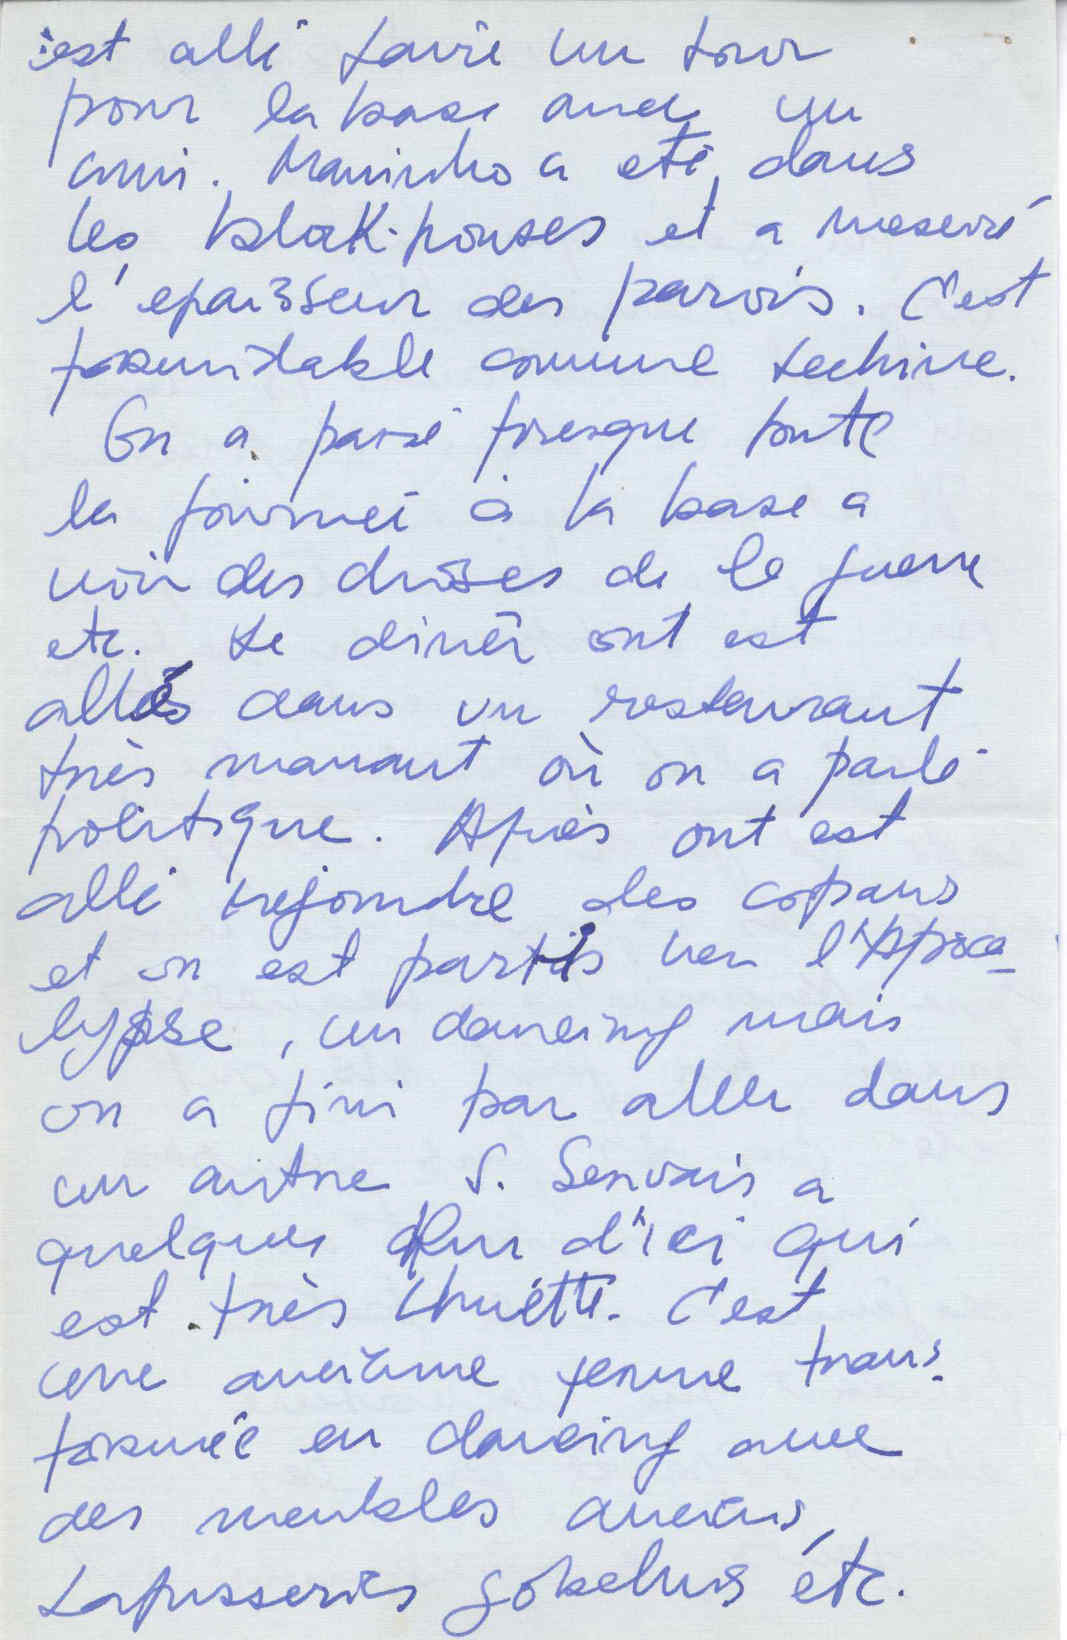 est allé faire un tour
pour la base avec un
ami. Maninho a eté dans
les blok-houses et a meseuré
l'epaisseur des parois. C'est
formidable comme technine.
On a passé presque toute
la journeé à la base a
voir des choses de la guerre
etc. Le dinêr ont est
allés dans un restaurant
très marrant où on a parlé
politique. Après ont est
allé rejoindre des copans
et on est partis ver l'Apoca-
lypse, un dancing mais
on a fini par aller dans
un autre S. Servais a
quelques d'ici qui
est très chuétte. C'est
une anciènne ferme trans-
formeé en dancing avec
des meubles anciens,
tapisseries gobelins étc.